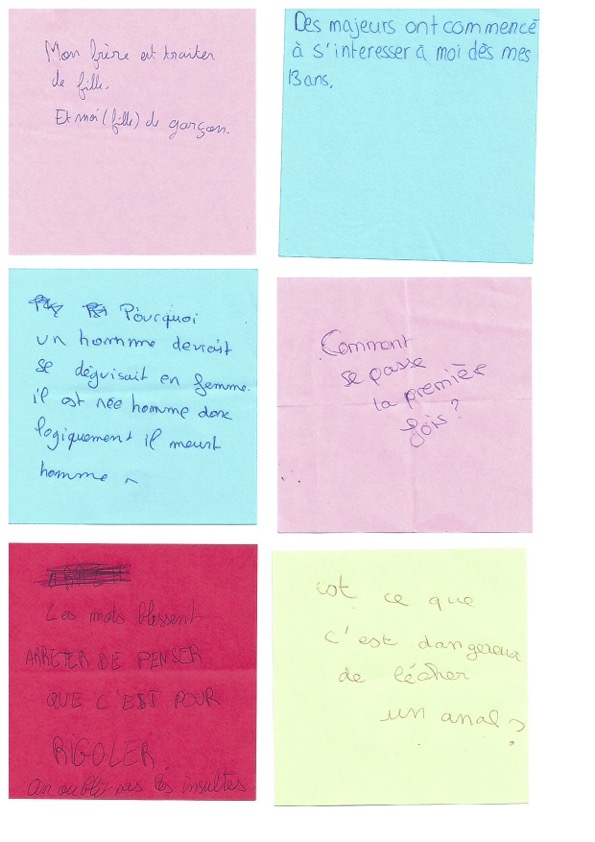 Mon frère est traiter
de fille.
Et moi (fille) de garçon.
Des majeurs ont commencé
à s'interesser à moi dès mes
13 ans.
Pourquoi
un homme devrait
se déguisait en femme.
il est née homme donc
logiquement il meurt
homme
Comment
se passe
la première
fois ?
Les mots blessent
ARRETER DE PENSER
QUE C'EST POUR
RIGOLER.
On oublie pas les insultes
est ce que
c'est dangereux
de lécher
un anal ?